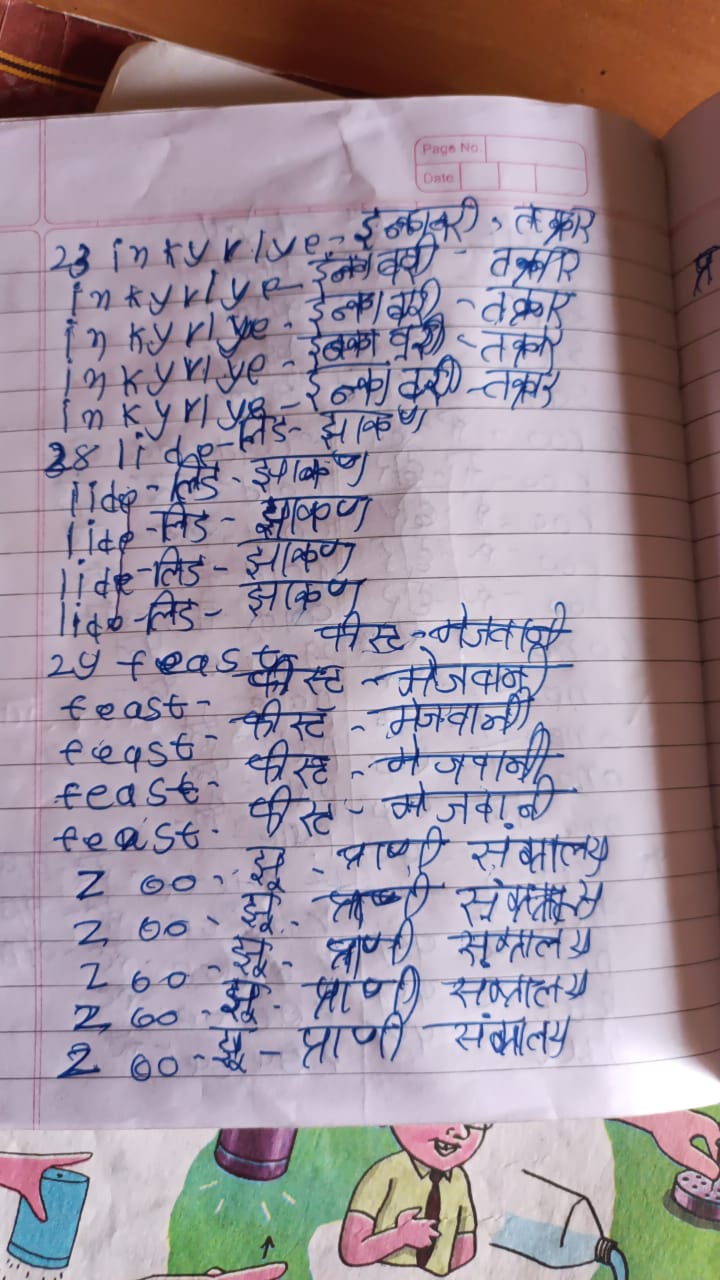 Page No.
Date
23 inkyrlye - इन्कावरी - तक्रार
inkyrlye - इन्कावरी - तक्रार
inkyrlye - इन्कावरी - तक्रार
inkyrlye - इनकावरी - तक्रार
inkyrlye - इन्कावरी - तक्रार
28 lide - लिड - झाकण
lide - लिड - झाकण
lide - लिड - झाकण
lide - लिड - झाकण
lide - लिड - झाकण
29 feast - फीस्ट - मेजवानी
feast - फीस्ट - मेजवानी
feast - फीस्ट - मेजवानी
feast - फीस्ट - मेजवानी
feast - फीस्ट - मेजवानी
zoo - झू - प्राणी
zoo - झू - प्राणी
zoo - झू - प्राणी
zoo - झू - प्राणी
zoo - झू - प्राणी